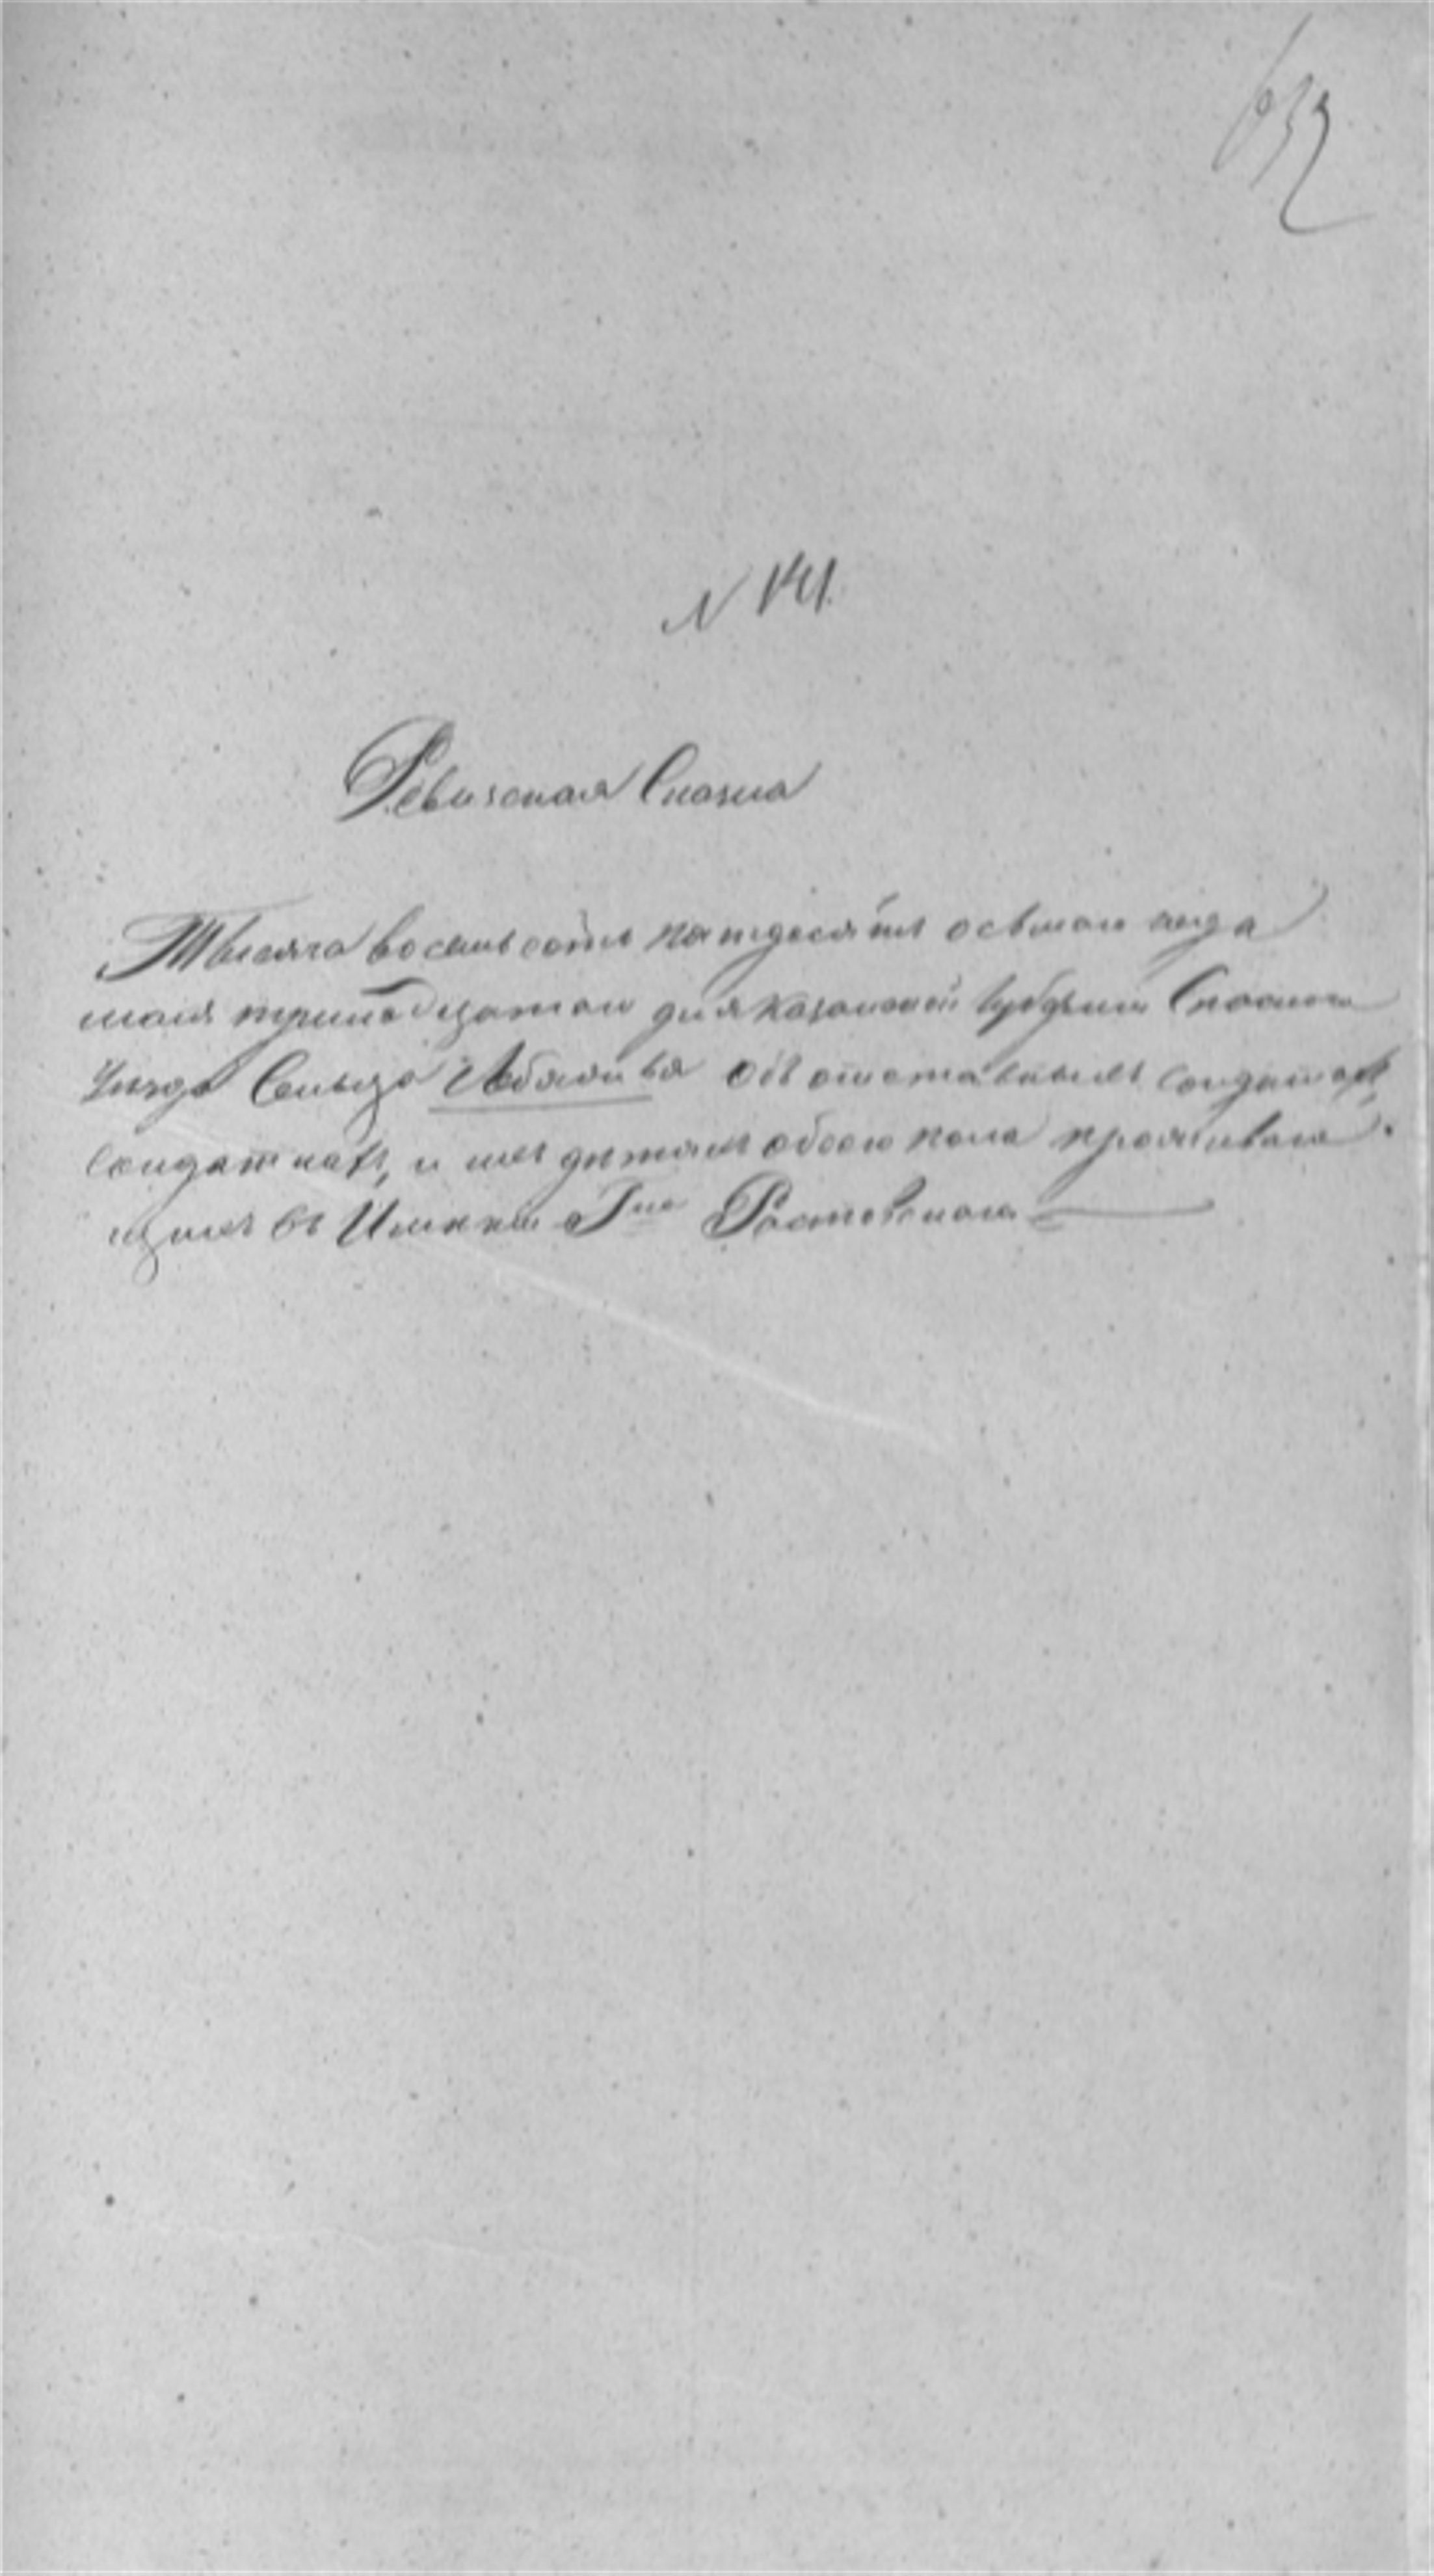 632
N 141.
Ревизская Сказка
Тысяча восемь сотъ пятьдесятъ осьмаго года
маия тринадцатаго дня Казанской Губернии Спаскаго
Уезда Сельца объ отставныхъ солдатахъ,
солдаткахъ, и ихъ детяхъ обоего пола проживаю-
щихъ въ Имении Гна Ростовскаго